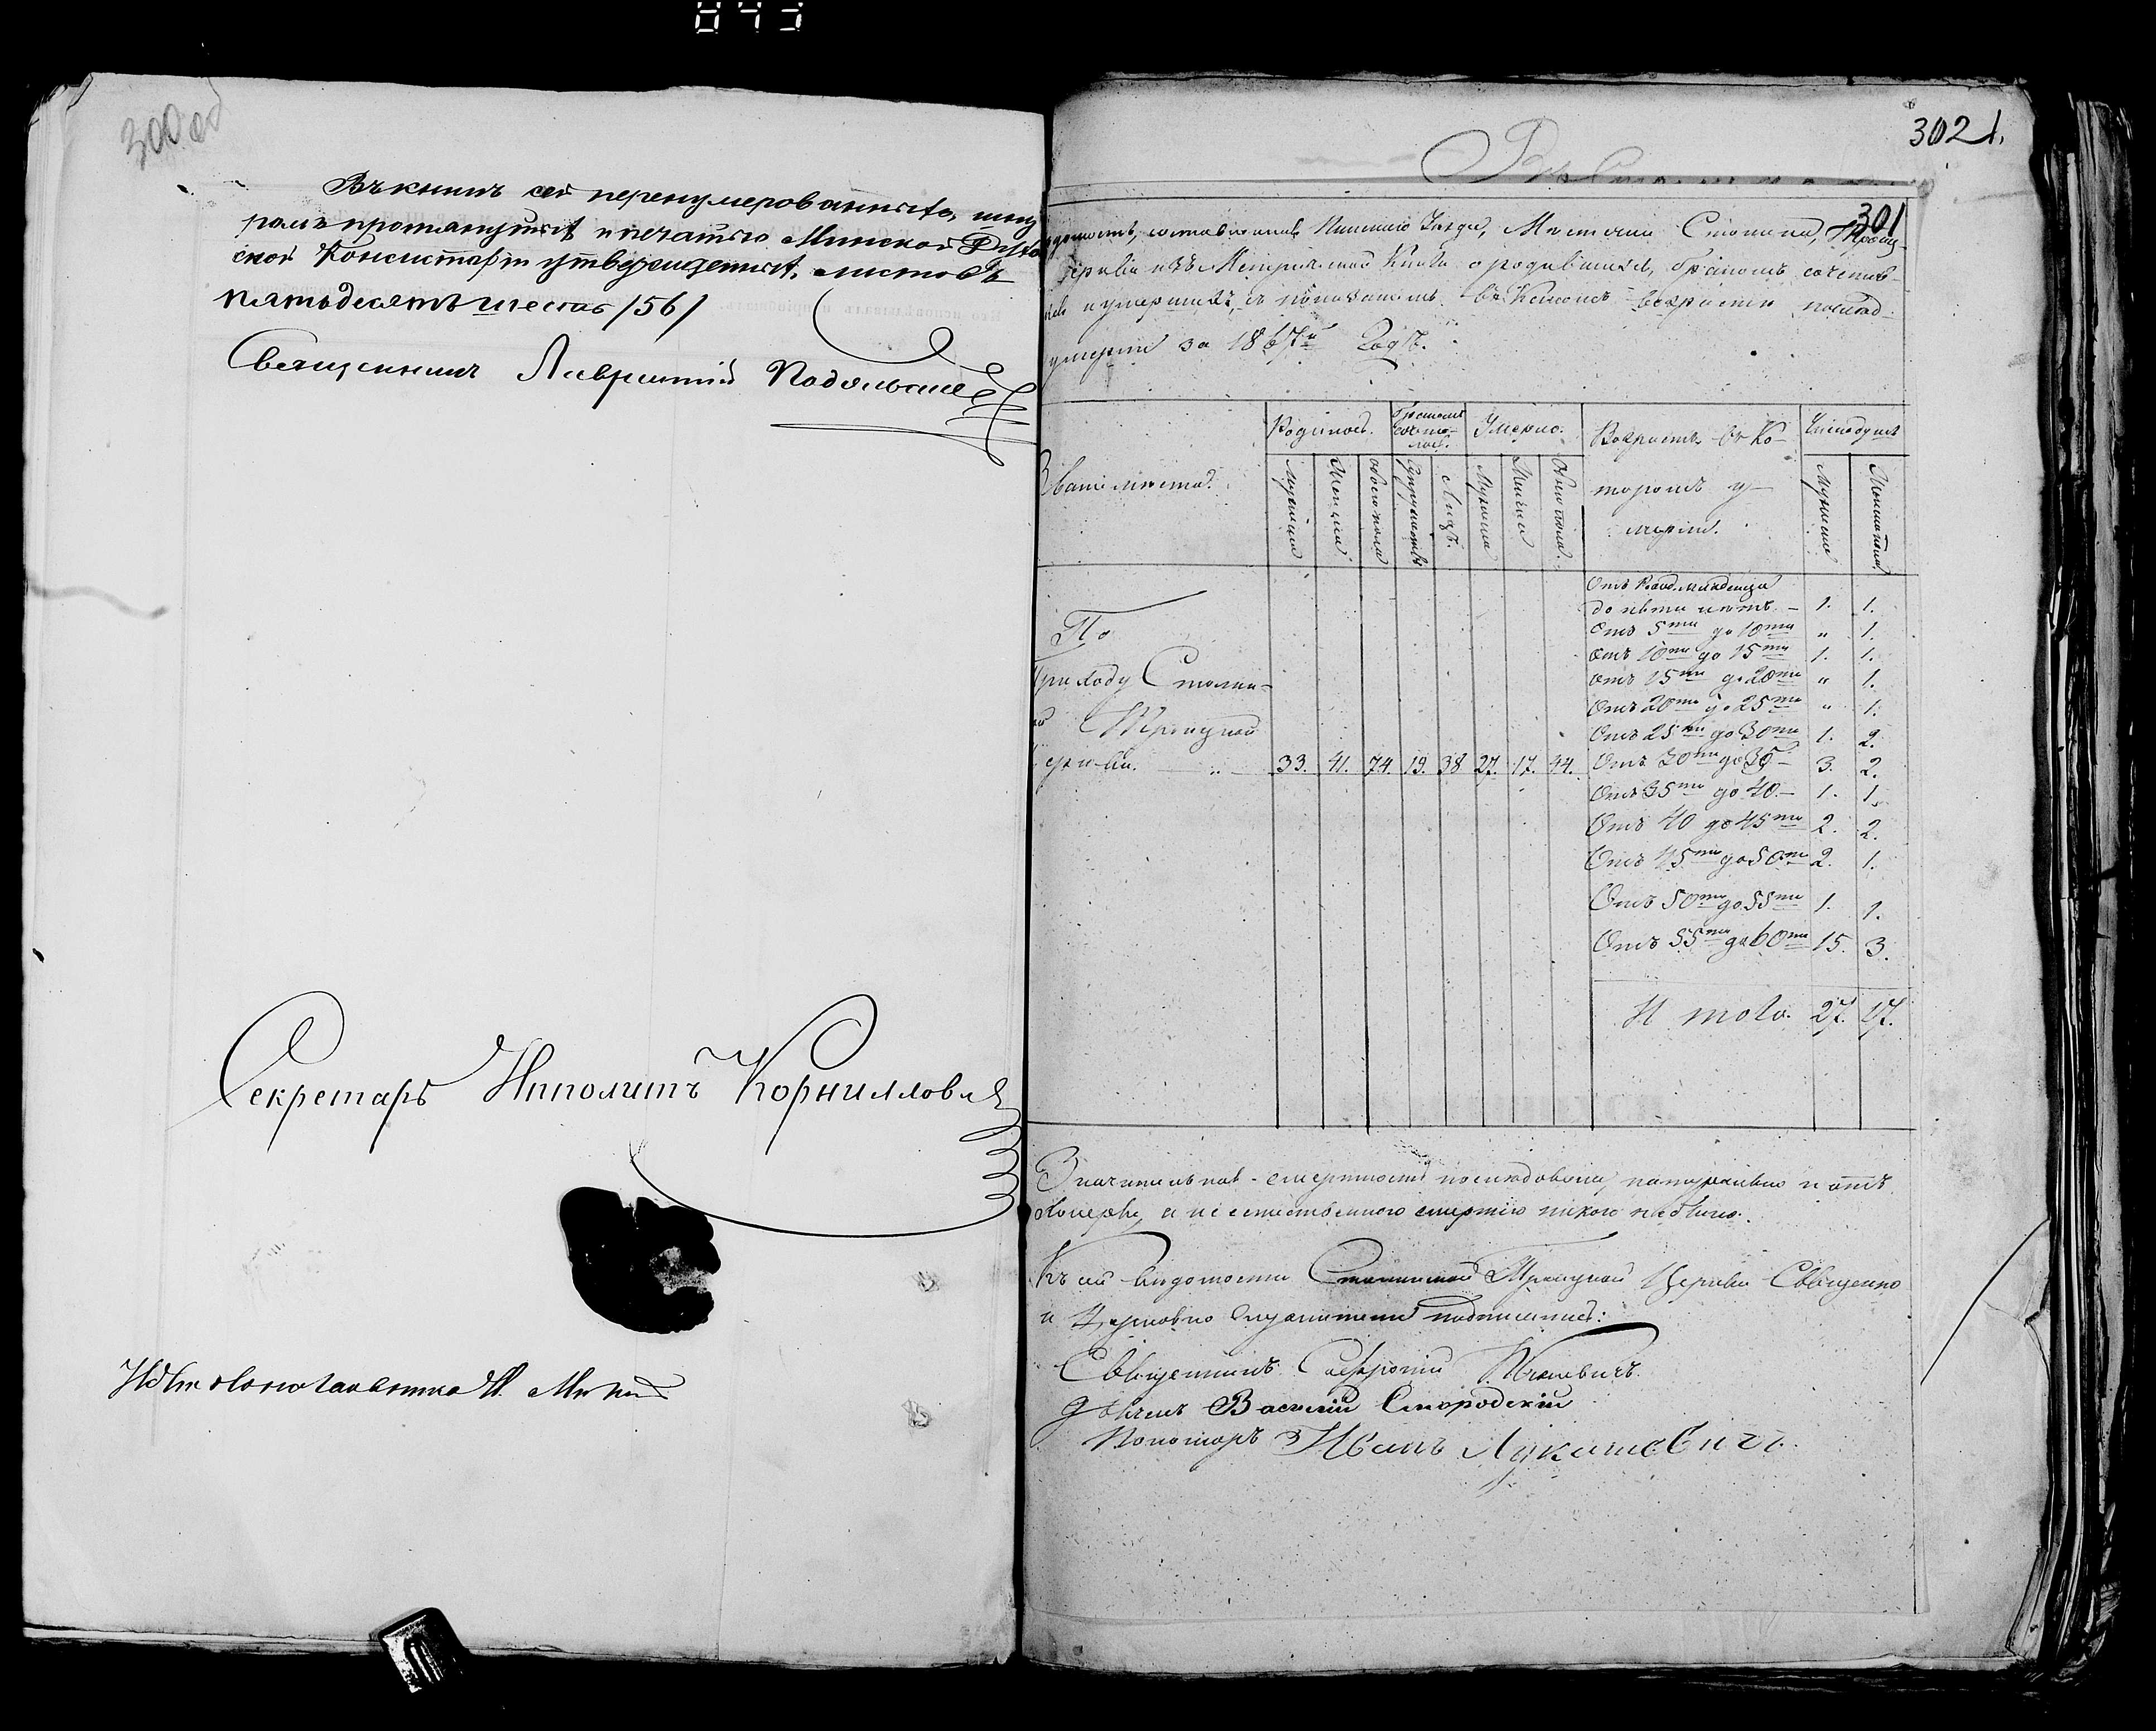 843
300 об
Въ книгѣ сей перенумерованныхъ, шну
ромъ протянутыхъ и печатью Минской Духо
ской Консисторіи утвержденныхъ, листовъ
пятьдесятъ шесть /56/
Священникъ Лаврентій
Секретарь Ипполитъ Корниллов
302 1.
301
домость, составленная Пинскаго Уѣзда, Мѣстечка Столина, Троиц-
церкви изъ Метрической Книги о родившихся, бракомъ сочетав-
и умершихъ, съ показаніемъ въ какомъ возрастѣ послѣд-
умерли за 1867й Годъ.
Званіе мѣста.
Родилось.
Мужеска
Женска
Обоего пола
Бракомъ сочета-
лось.
Супружествъ
Лицъ.
Умерло.
Мужеска
Женска
Обоего пола.
Возрастъ въ ко-
торомъ у-
мерли.
Число душъ
Мужеска
Женска
По
Приходу Столин-
Троицкой
Церкви. — „ — 33. 41. 74. 19. 38 27. 17. 44.
Отъ Рожд. младенца
до пяти лѣтъ — 1. 1.
Отъ 5ти до 10ти „ 1.
Отъ 10ти до 15ти 1. 1.
Отъ 15ти до 20ти „ 1.
Отъ 20ти до 25ти „ 1.
Отъ 25ти до 30ти 1. 2.
Отъ 30ти до 35 — 3. 2.
Отъ 35ти до 40 — 1. 1.
Отъ 40 до 45ти 2. 2.
Отъ 45ти до 50ти 2. 1.
Отъ 50ти до 55ти 1. 1.
Отъ 55ти до 60ти 15. 3.
Итого. 27. 17.
Значительная смертность послѣдовала натурально и отъ
холеры, а неестественною смертію никого не было.
Къ сей вѣдомости Столинской Троицкой Церкви Священно
и Церковно служители подписались:
Священникъ Софроній
Дьячекъ Василій Смородскій
Пономарь Иванъ Лукашевичъ.